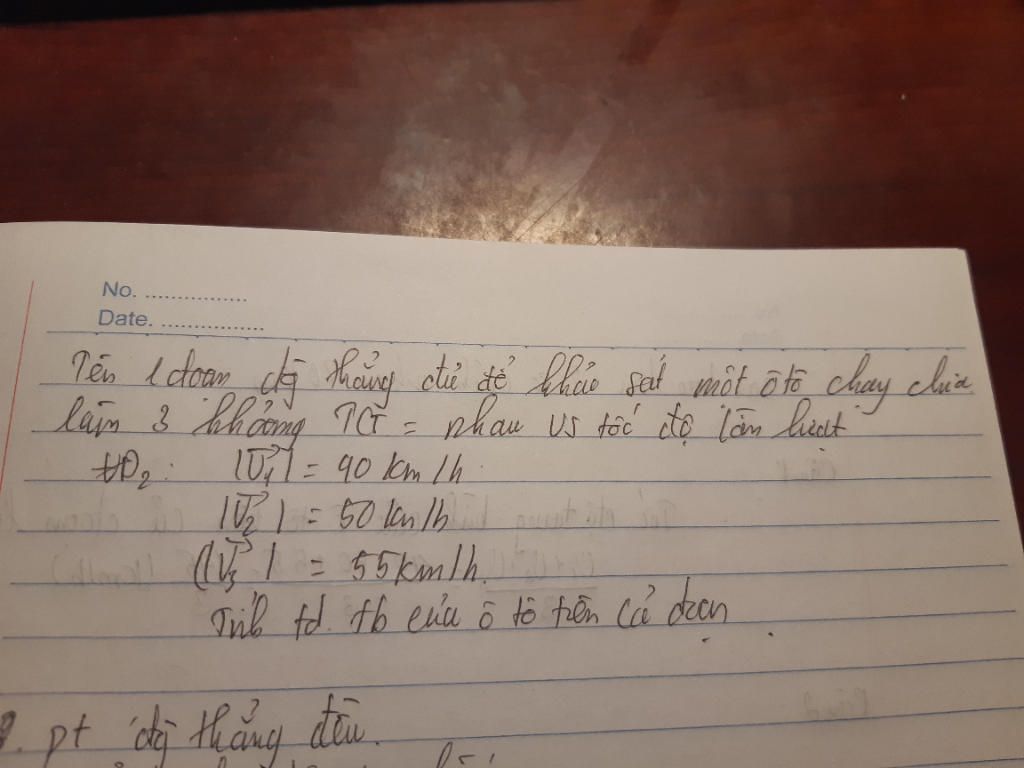 No. ................
Date. ................
Tên 1 đoạn đg thẳng đủ để khảo sát một ôtô chạy chia
làm 3 khoảng TG = nhau vs tốc độ lần lượt
VD2: |V1| = 90 km/h
|V2| = 50 km/h
(|V3| = 55 km/h.
Tính td tb của ô tô trên cả đoạn
pt đg thẳng đều.